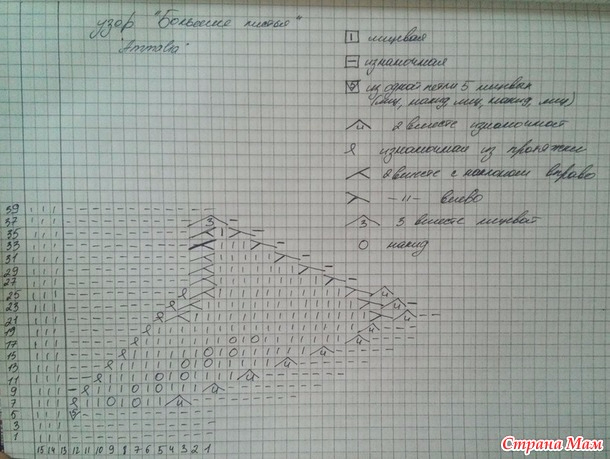 узор "Большие листья"
"Emmalia"
I лицевая
– изнаночная
5 из одной петли 5 лицевых
(лиц, накид, лиц, накид, лиц)
и 2 вместе изнаночной
изнаночная из протяжки
2 вместе с наклоном вправо
–"– влево
3 3 вместе лицевой
O накид
39
37
35
33
31
29
27
25
23
21
19
17
15
13
11
9
7
5
3
1
15 14 13 12 11 10 9 8 7 6 5 4 3 2 1
Страна Мам